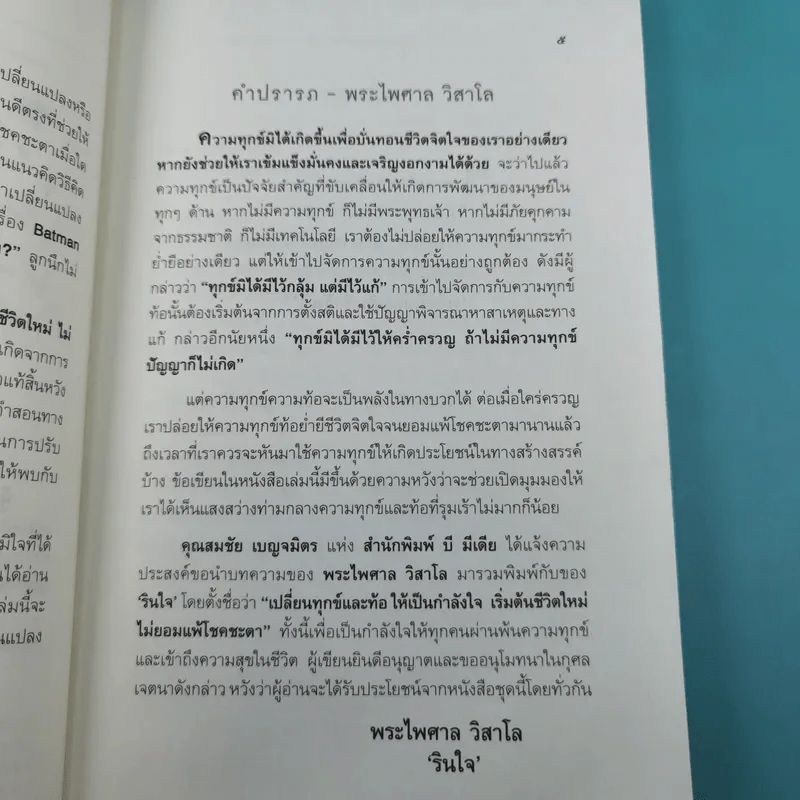 เปลี่ยนแปลงหรือ
นดีตรงที่ช่วยให้
ชคชะตาเมื่อใด
นแนวคิดวิธีคิด
าเปลี่ยนแปลง
รื่อง Batman
?” ลูกนึกไม่
ชีวิตใหม่ ไม่
เกิดจากการ
แท้สิ้นหวัง
คำสอนทาง
นการปรับ
ให้พบกับ
มิใจที่ได้
นได้อ่าน
ล่มนี้จะ
นแปลง
๕
คำปรารภ - พระไพศาล วิสาโล
ความทุกข์มิได้เกิดขึ้นเพื่อบั่นทอนชีวิตจิตใจของเราอย่างเดียว
หากยังช่วยให้เราเข้มแข็งมั่นคงและเจริญงอกงามได้ด้วย จะว่าไปแล้ว
ความทุกข์เป็นปัจจัยสำคัญที่ขับเคลื่อนให้เกิดการพัฒนาของมนุษย์ใน
ทุกๆ ด้าน หากไม่มีความทุกข์ ก็ไม่มีพระพุทธเจ้า หากไม่มีภัยคุกคาม
จากธรรมชาติ ก็ไม่มีเทคโนโลยี เราต้องไม่ปล่อยให้ความทุกข์มากระทำ
ย่ำยีอย่างเดียว แต่ให้เข้าไปจัดการความทุกข์นั้นอย่างถูกต้อง ดังมีผู้
กล่าวว่า “ทุกข์มิได้มีไว้กลุ้ม แต่มีไว้แก้” การเข้าไปจัดการกับความทุกข์
ท้อนั้นต้องเริ่มต้นจากการตั้งสติและใช้ปัญญาพิจารณาหาสาเหตุและทาง
แก้ กล่าวอีกนัยหนึ่ง “ทุกข์มิได้มีไว้ให้คร่ำครวญ ถ้าไม่มีความทุกข์
ปัญญาก็ไม่เกิด”
แต่ความทุกข์ความท้อจะเป็นพลังในทางบวกได้ ต่อเมื่อใคร่ครวญ
เราปล่อยให้ความทุกข์ท้อย่ำยีชีวิตจิตใจจนยอมแพ้โชคชะตามานานแล้ว
ถึงเวลาที่เราควรจะหันมาใช้ความทุกข์ให้เกิดประโยชน์ในทางสร้างสรรค์
บ้าง ข้อเขียนในหนังสือเล่มนี้มีขึ้นด้วยความหวังว่าจะช่วยเปิดมุมมองให้
เราได้เห็นแสงสว่างท่ามกลางความทุกข์และท้อที่รุมเร้าไม่มากก็น้อย
คุณสมชัย เบญจมิตร แห่ง สำนักพิมพ์ บี มีเดีย ได้แจ้งความ
ประสงค์ขอนำบทความของ พระไพศาล วิสาโล มารวมพิมพ์กับของ
‘รินใจ’ โดยตั้งชื่อว่า “เปลี่ยนทุกข์และท้อ ให้เป็นกำลังใจ เริ่มต้นชีวิตใหม่
ไม่ยอมแพ้โชคชะตา” ทั้งนี้เพื่อเป็นกำลังใจให้ทุกคนผ่านพ้นความทุกข์
และเข้าถึงความสุขในชีวิต ผู้เขียนยินดีอนุญาตและขออนุโมทนาในกุศล
เจตนาดังกล่าว หวังว่าผู้อ่านจะได้รับประโยชน์จากหนังสือชุดนี้โดยทั่วกัน
พระไพศาล วิสาโล
‘รินใจ’